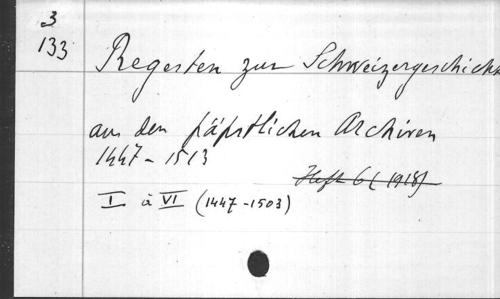 3
133
Regesten zur Schweizergeschichte
aus den päpstlichen Archiven
1447-1513
Heft 6 (1918)
I à VI (1447-1503)